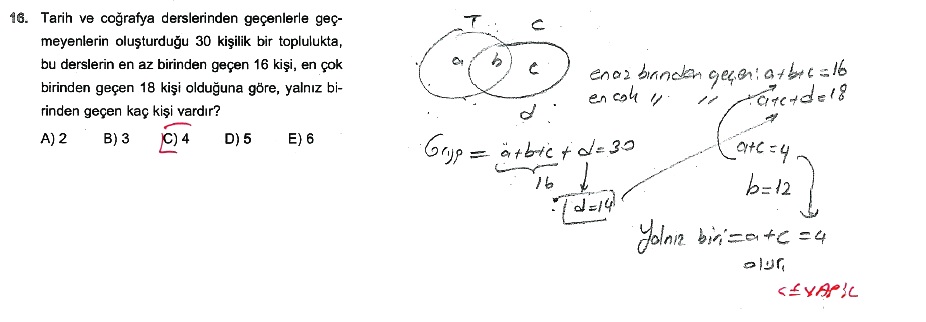 16. Tarih ve coğrafya derslerinden geçenlerle geç-
meyenlerin oluşturduğu 30 kişilik bir toplulukta,
bu derslerin en az birinden geçen 16 kişi, en çok
birinden geçen 18 kişi olduğuna göre, yalnız bi-
rinden geçen kaç kişi vardır?
A) 2 B) 3 C) 4 D) 5 E) 6
T C
a b c
d
en az birinden geçen: a+b+c=16
en çok " " a+c+d=18
Grup = a+b+c + d=30
16
d=14
a+c=4
b=12
Yalnız biri=a+c=4
olur.
CEVAP: C